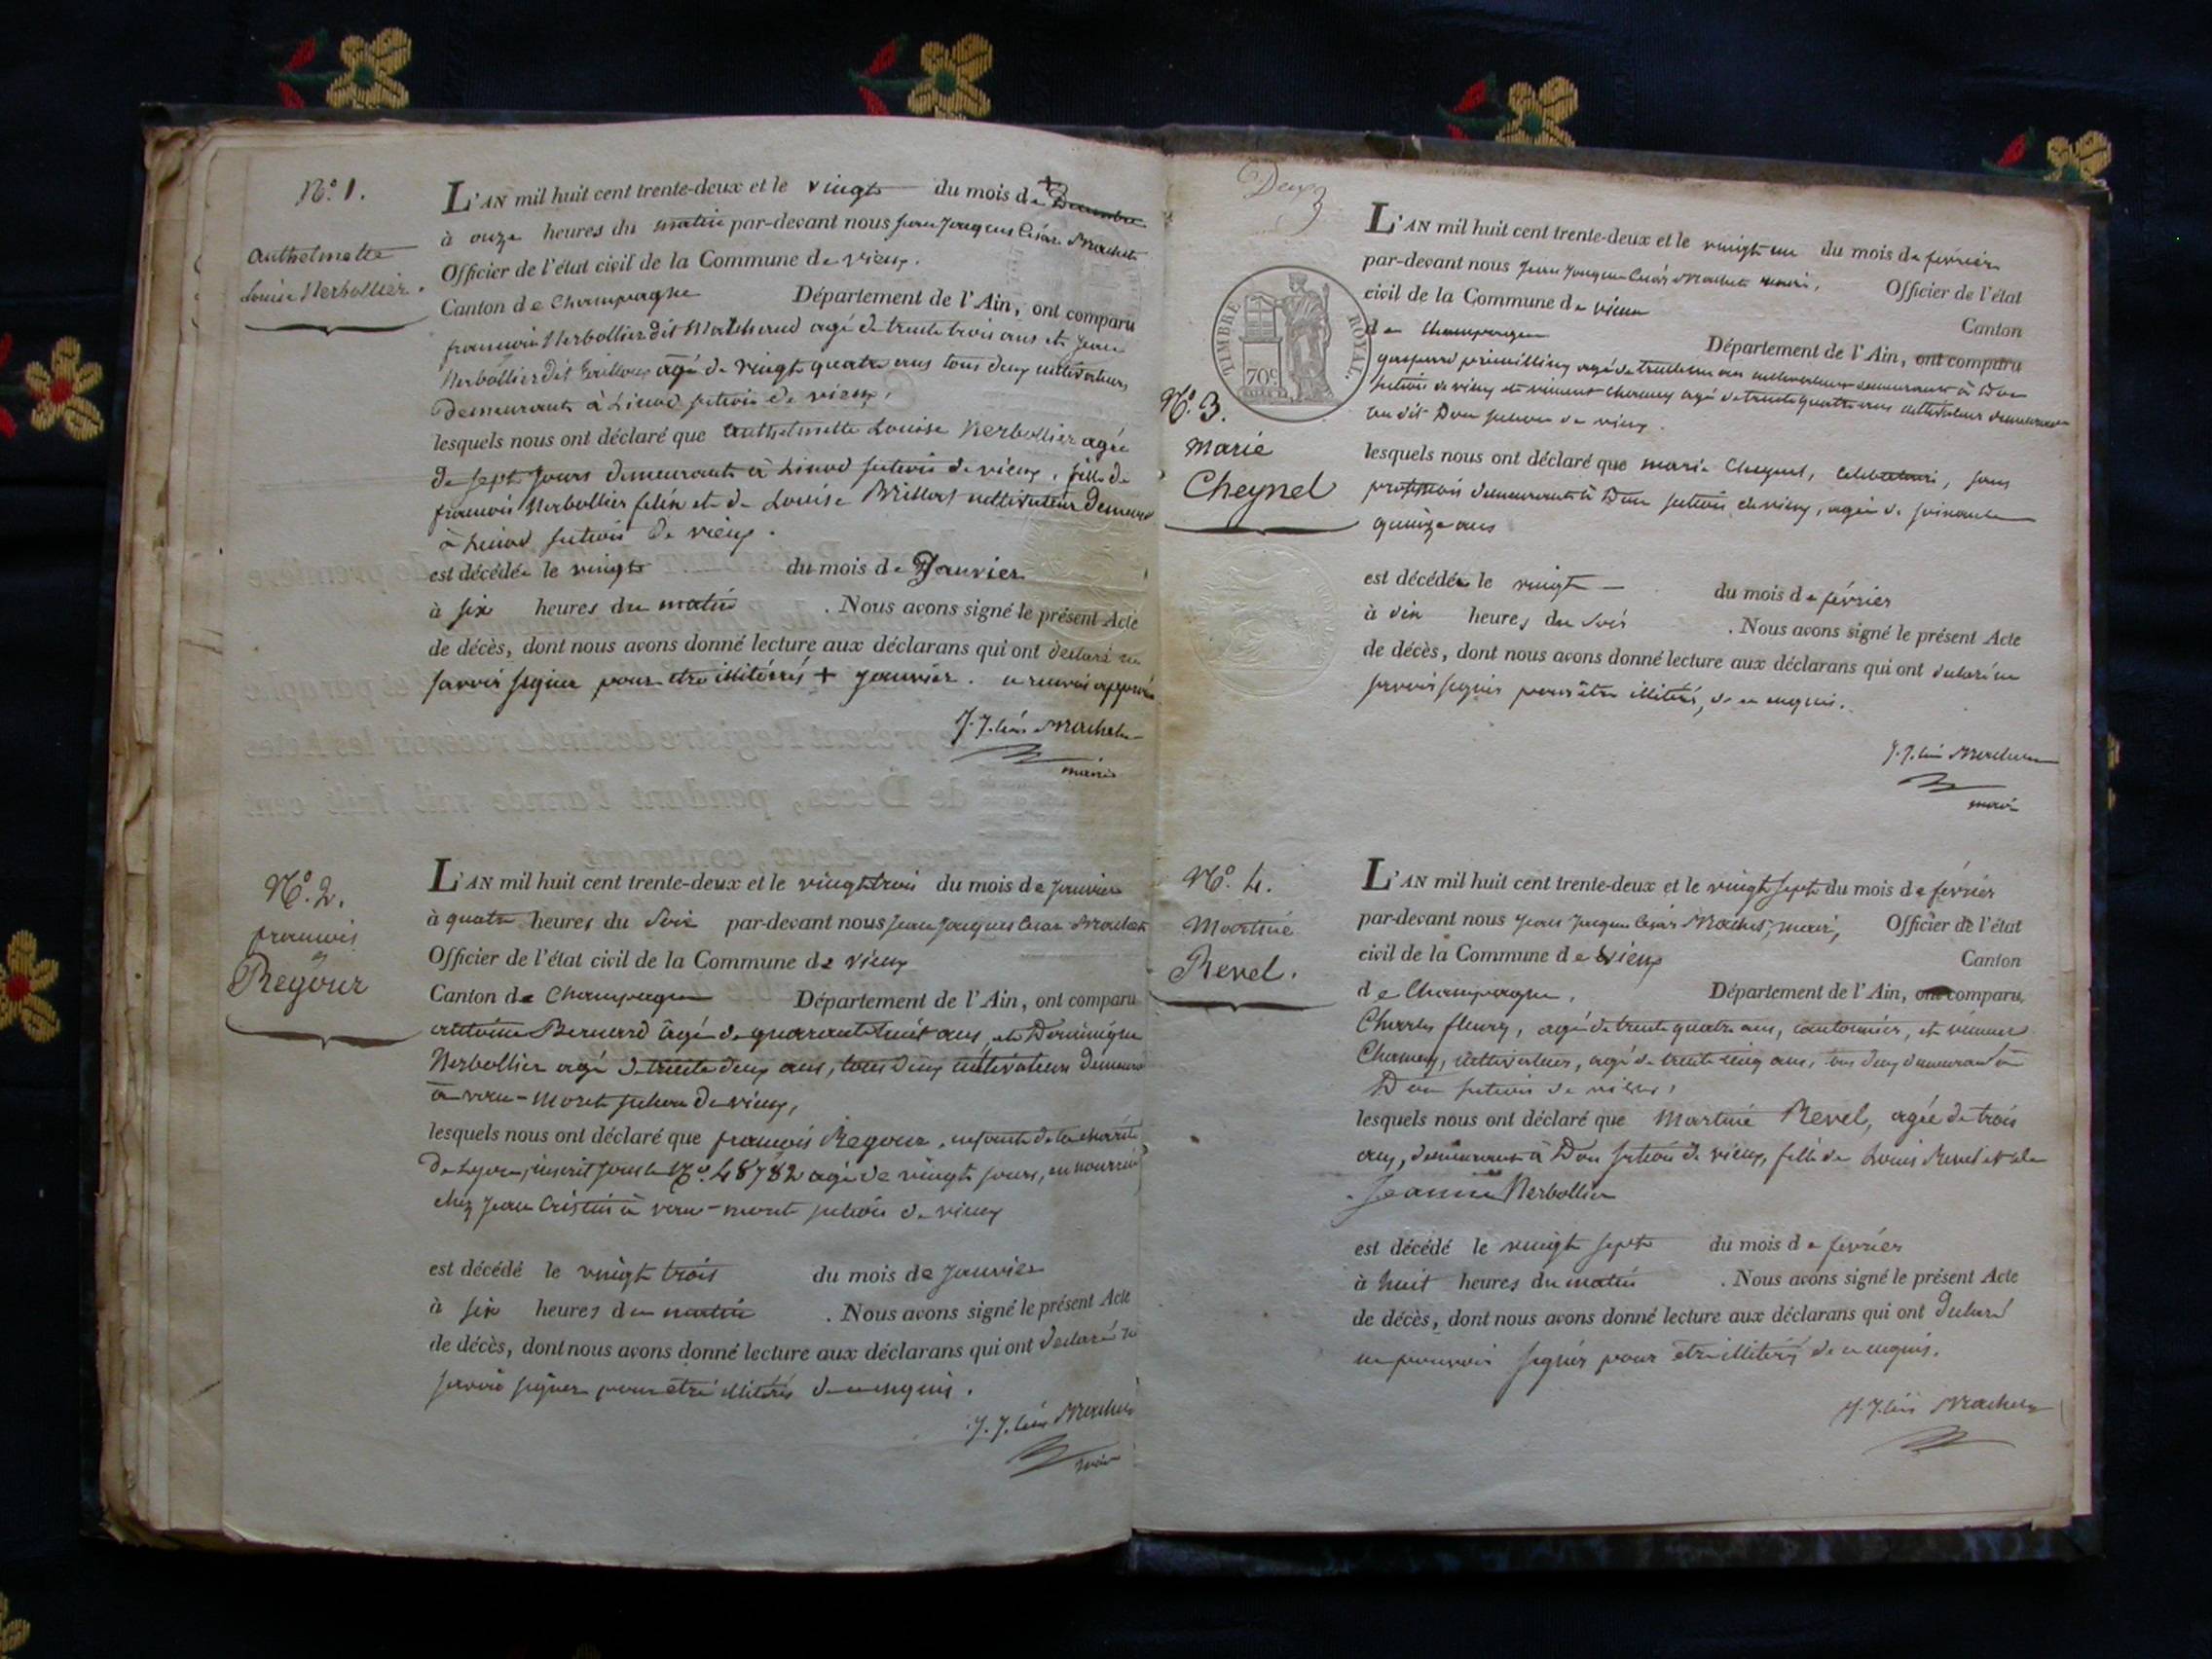 N.o 1.
Anthelmette
Louise Nerbollier.
L'AN mil huit cent trente-deux et le vingt du mois de Decembre
à onze heures du matin par-devant nous Jean Jacques César Machet
Officier de l'état civil de la Commune de vieux.
Canton de Champagne Département de l'Ain, ont comparu
francois Nerbollier dit agé de trente trois ans et jean
Nerbollier dit agé de vingt quatre ans tous deux cultivateurs
demeurants à Linod section de vieux,
lesquels nous ont déclaré que Anthelmette Louise Nerbollier agée
de sept jours demeurante à Linod section de vieux, fille de
francois Nerbollier felix et de Louise Brillat cultivateur demeurt
à Linod section de vieux.
est décédée le vingt du mois de Janvier
à six heures du matin . Nous avons signé le présent Acte
de décès, dont nous avons donné lecture aux déclarans qui ont declaré ne
savoir signer pour etre illitérés + janvier. approuvé
J. J. César Machet
maire
N.o 2.
francois
Regour
L'AN mil huit cent trente-deux et le vingt trois du mois de janvier
à quatre heures du soir par-devant nous jean jacques César Machet
Officier de l'état civil de la Commune de vieux
Canton de Champagne Département de l'Ain, ont comparu
antoine Bernard âgé de quarante huit ans, et Dominique
Nerbollier agé de trente deux ans, tous deux cultivateurs demeurt
à vrau-moret section de vieux,
lesquels nous ont déclaré que francois Regour, enfant de la charité
de Lyon, inscrit sous le N.o 48782 agé de vingt jours, en nourrice
chez jean Cristin à section de vieux
est décédé le vingt trois du mois de janvier
à six heures du matin . Nous avons signé le présent Acte
de décès, dont nous avons donné lecture aux déclarans qui ont declaré ne
savoir signer pour etre illitérés de ce enquis.
J. J. César Machet
maire
Deux
TIMBRE ROYAL.
70c
N.o 3.
Marie
Cheynel
L'AN mil huit cent trente-deux et le vingt un du mois de février
par-devant nous Jean Jacques César Machet maire, Officier de l'état
civil de la Commune de vieux Canton
de Champagne Département de l'Ain, ont comparu
gaspard agé de trente ans cultivateur demeurant à Don
section de vieux et vincent Chamey agé de trente quatre ans cultivateur demeurant
au dit Don section de vieux.
lesquels nous ont déclaré que marie Cheynel, celibataire, sans
profession demeurante à Don section de vieux, agée de soixante
quinze ans
est décédée le vingt du mois de février
à dix heures du soir . Nous avons signé le présent Acte
de décès, dont nous avons donné lecture aux déclarans qui ont declaré ne
savoir signer pour être illitérés, de ce enquis.
J. J. César Machet
maire
N.o 4.
Martine
Revel.
L'AN mil huit cent trente-deux et le vingt sept du mois de février
par-devant nous Jean Jacques César Machet, maire, Officier de l'état
civil de la Commune de vieux Canton
de Champagne, Département de l'Ain, ont comparu
Charles fleury, agé de trente quatre ans, cantonnier, et vincent
Chamey, cultivateur, agé de trente cinq ans, tous deux demeurant à
Don section de vieux,
lesquels nous ont déclaré que Martine Revel, agée de trois
ans, demeurant à Don section de vieux, fille de Louis Revel et de
Jeanne Nerbollier
est décédé le vingt sept du mois de février
à huit heures du matin . Nous avons signé le présent Acte
de décès, dont nous avons donné lecture aux déclarans qui ont declaré
ne pouvoir signer pour être illitérés de ce enquis.
J. J. César Machet